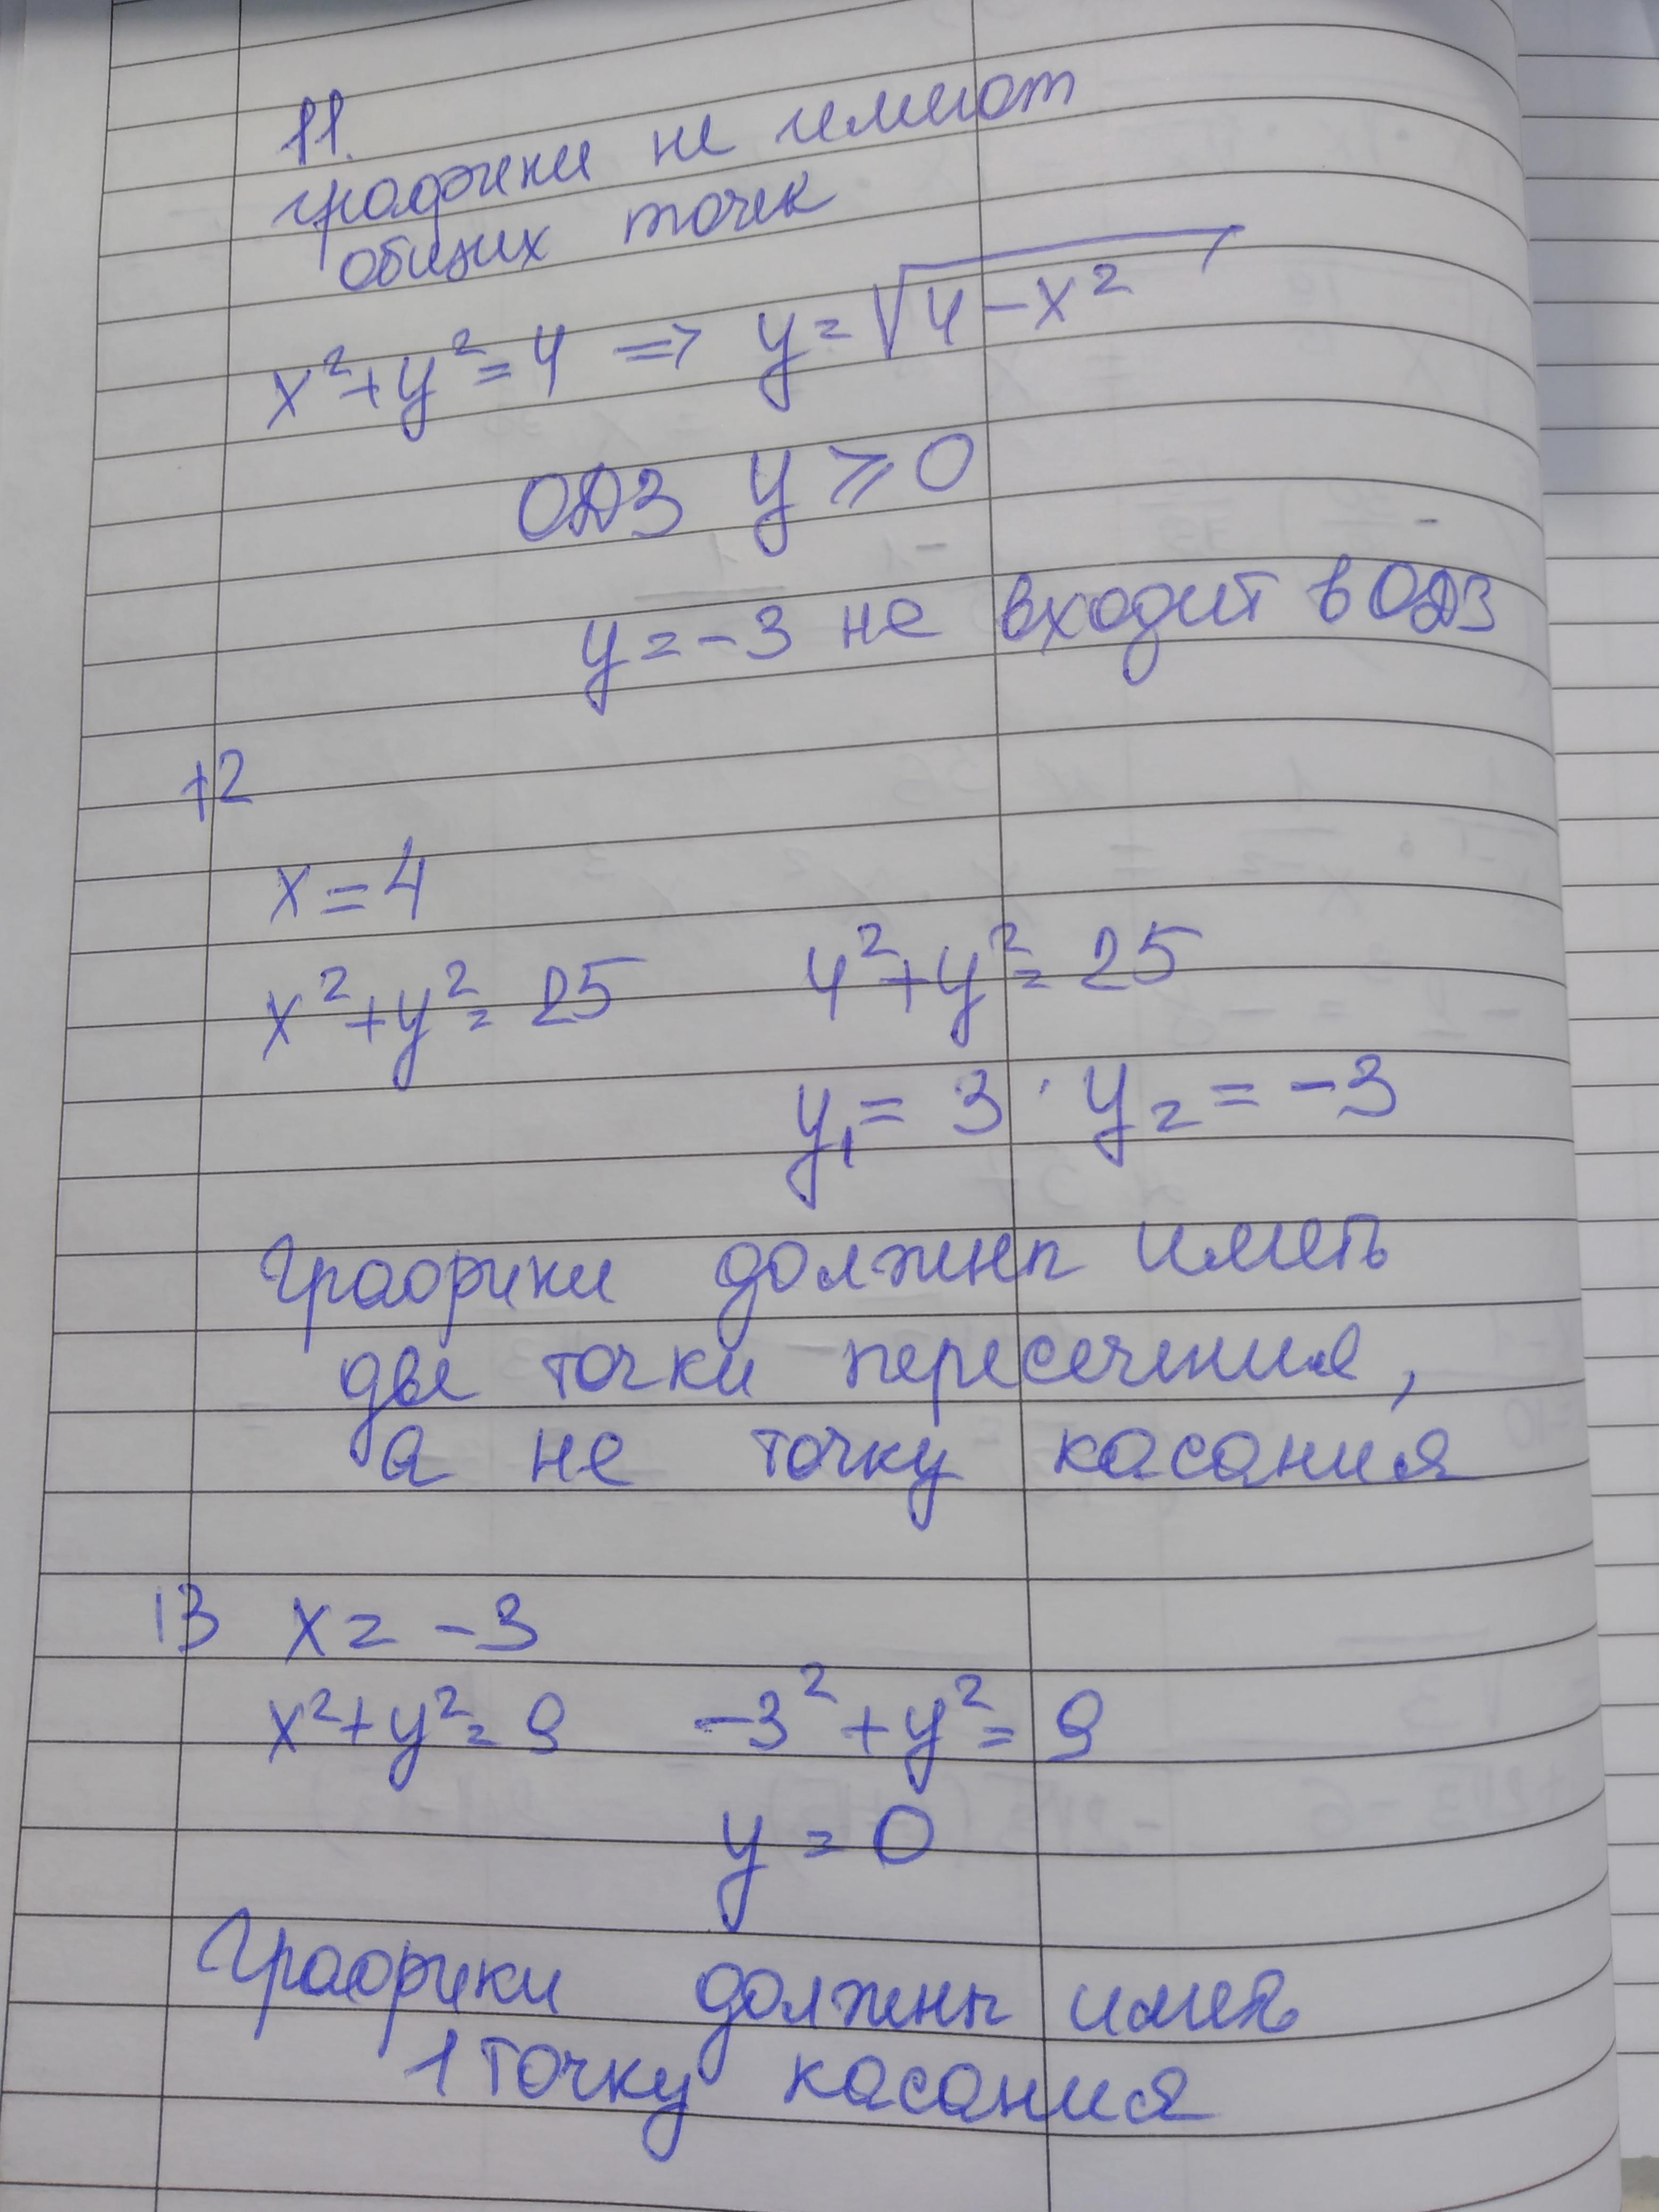 11.
графики не имеют
общих точек
x²+y²=4 => y=√4-x²
ОДЗ y ⩾ 0
y=-3 не входит в ОДЗ
12
x=4
x²+y²=25 4²+y²=25
y₁=3 y₂=-3
Графики должны иметь
две точки пересечения,
а не точку касания
13 x=-3
x²+y²=9 -3²+y²=9
y=0
Графики должны иметь
1 точку касания